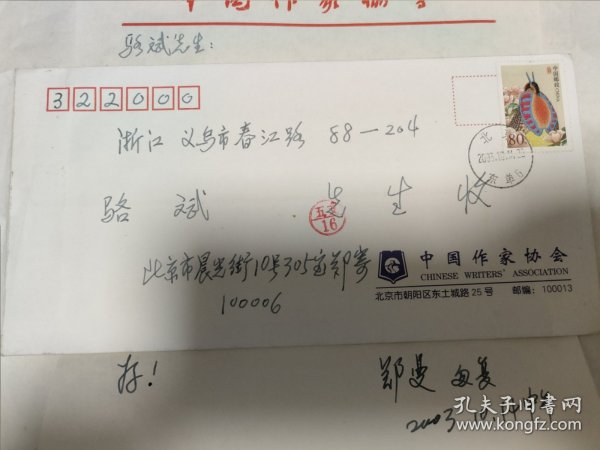 中国作家协会
骆斌先生：
322000
中国邮政
80
浙江 义乌市春江路 88—204
北京
骆斌 先生 收
16
北京市晨光街10号305室郑寄
100006
中国作家协会
CHINESE WRITERS' ASSOCIATION
北京市朝阳区东土城路25号 邮编：100013
好！
郑曼
2003.10.
孔夫子旧书网
www.kongfz.com